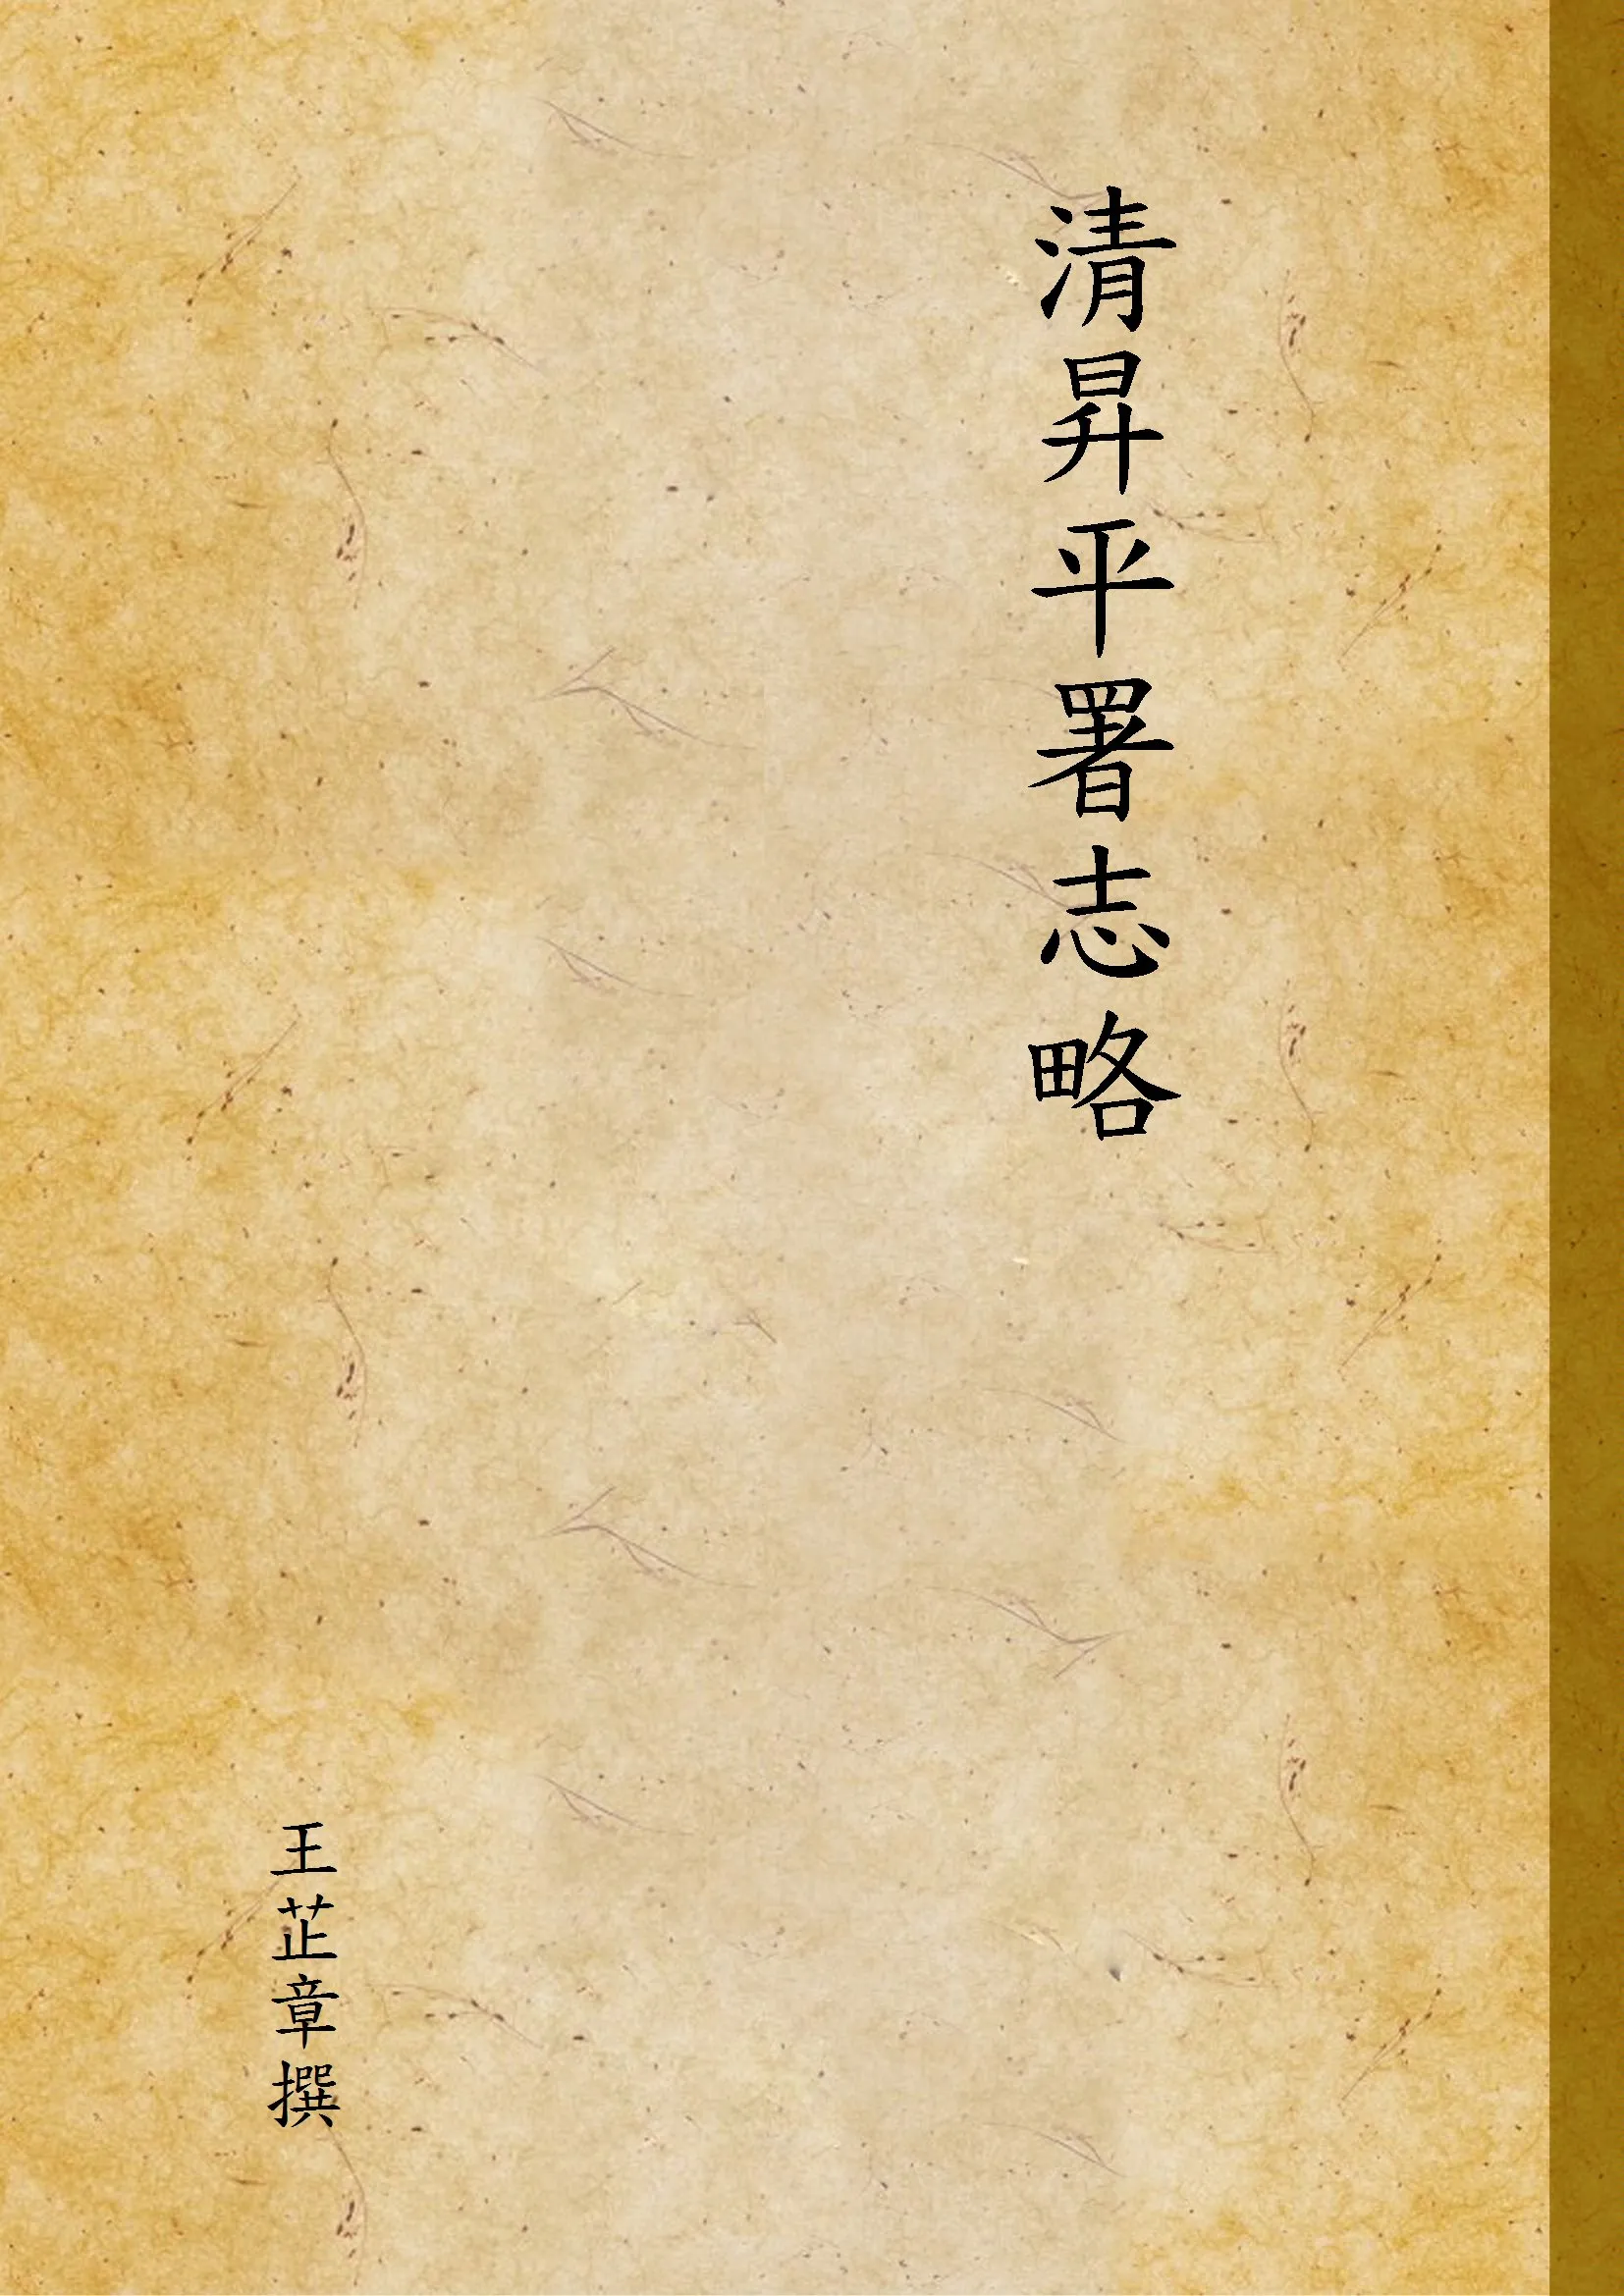 清昇平署志略
王芷章撰